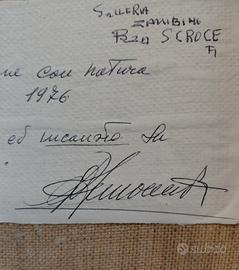 GALLERIA
ZANIBINI
PZA S CROCE
FI
ne con natura
1976
ed incanto su
subito